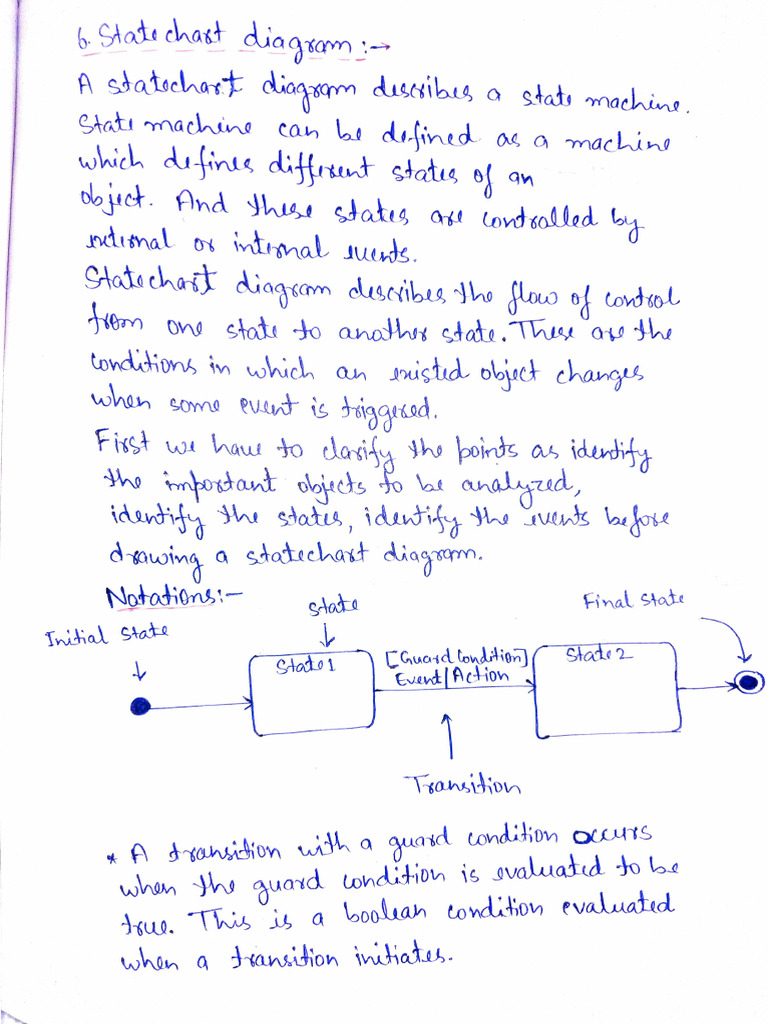 6. Statechart diagram:→
A statechart diagram describes a state machine.
State machine can be defined as a machine
which defines different states of an
object. And these states are controlled by
external or internal events.
Statechart diagram describes the flow of control
from one state to another state. These are the
conditions in which an existed object changes
when some event is triggered.
First we have to clarify the points as identify
the important objects to be analyzed,
identify the states, identify the events before
drawing a statechart diagram.
Notations:-
Initial state
state
Final state
State1
[Guard Condition]
Event/Action
State2
Transition
* A transition with a guard condition occurs
when the guard condition is evaluated to be
true. This is a boolean condition evaluated
when a transition initiates.